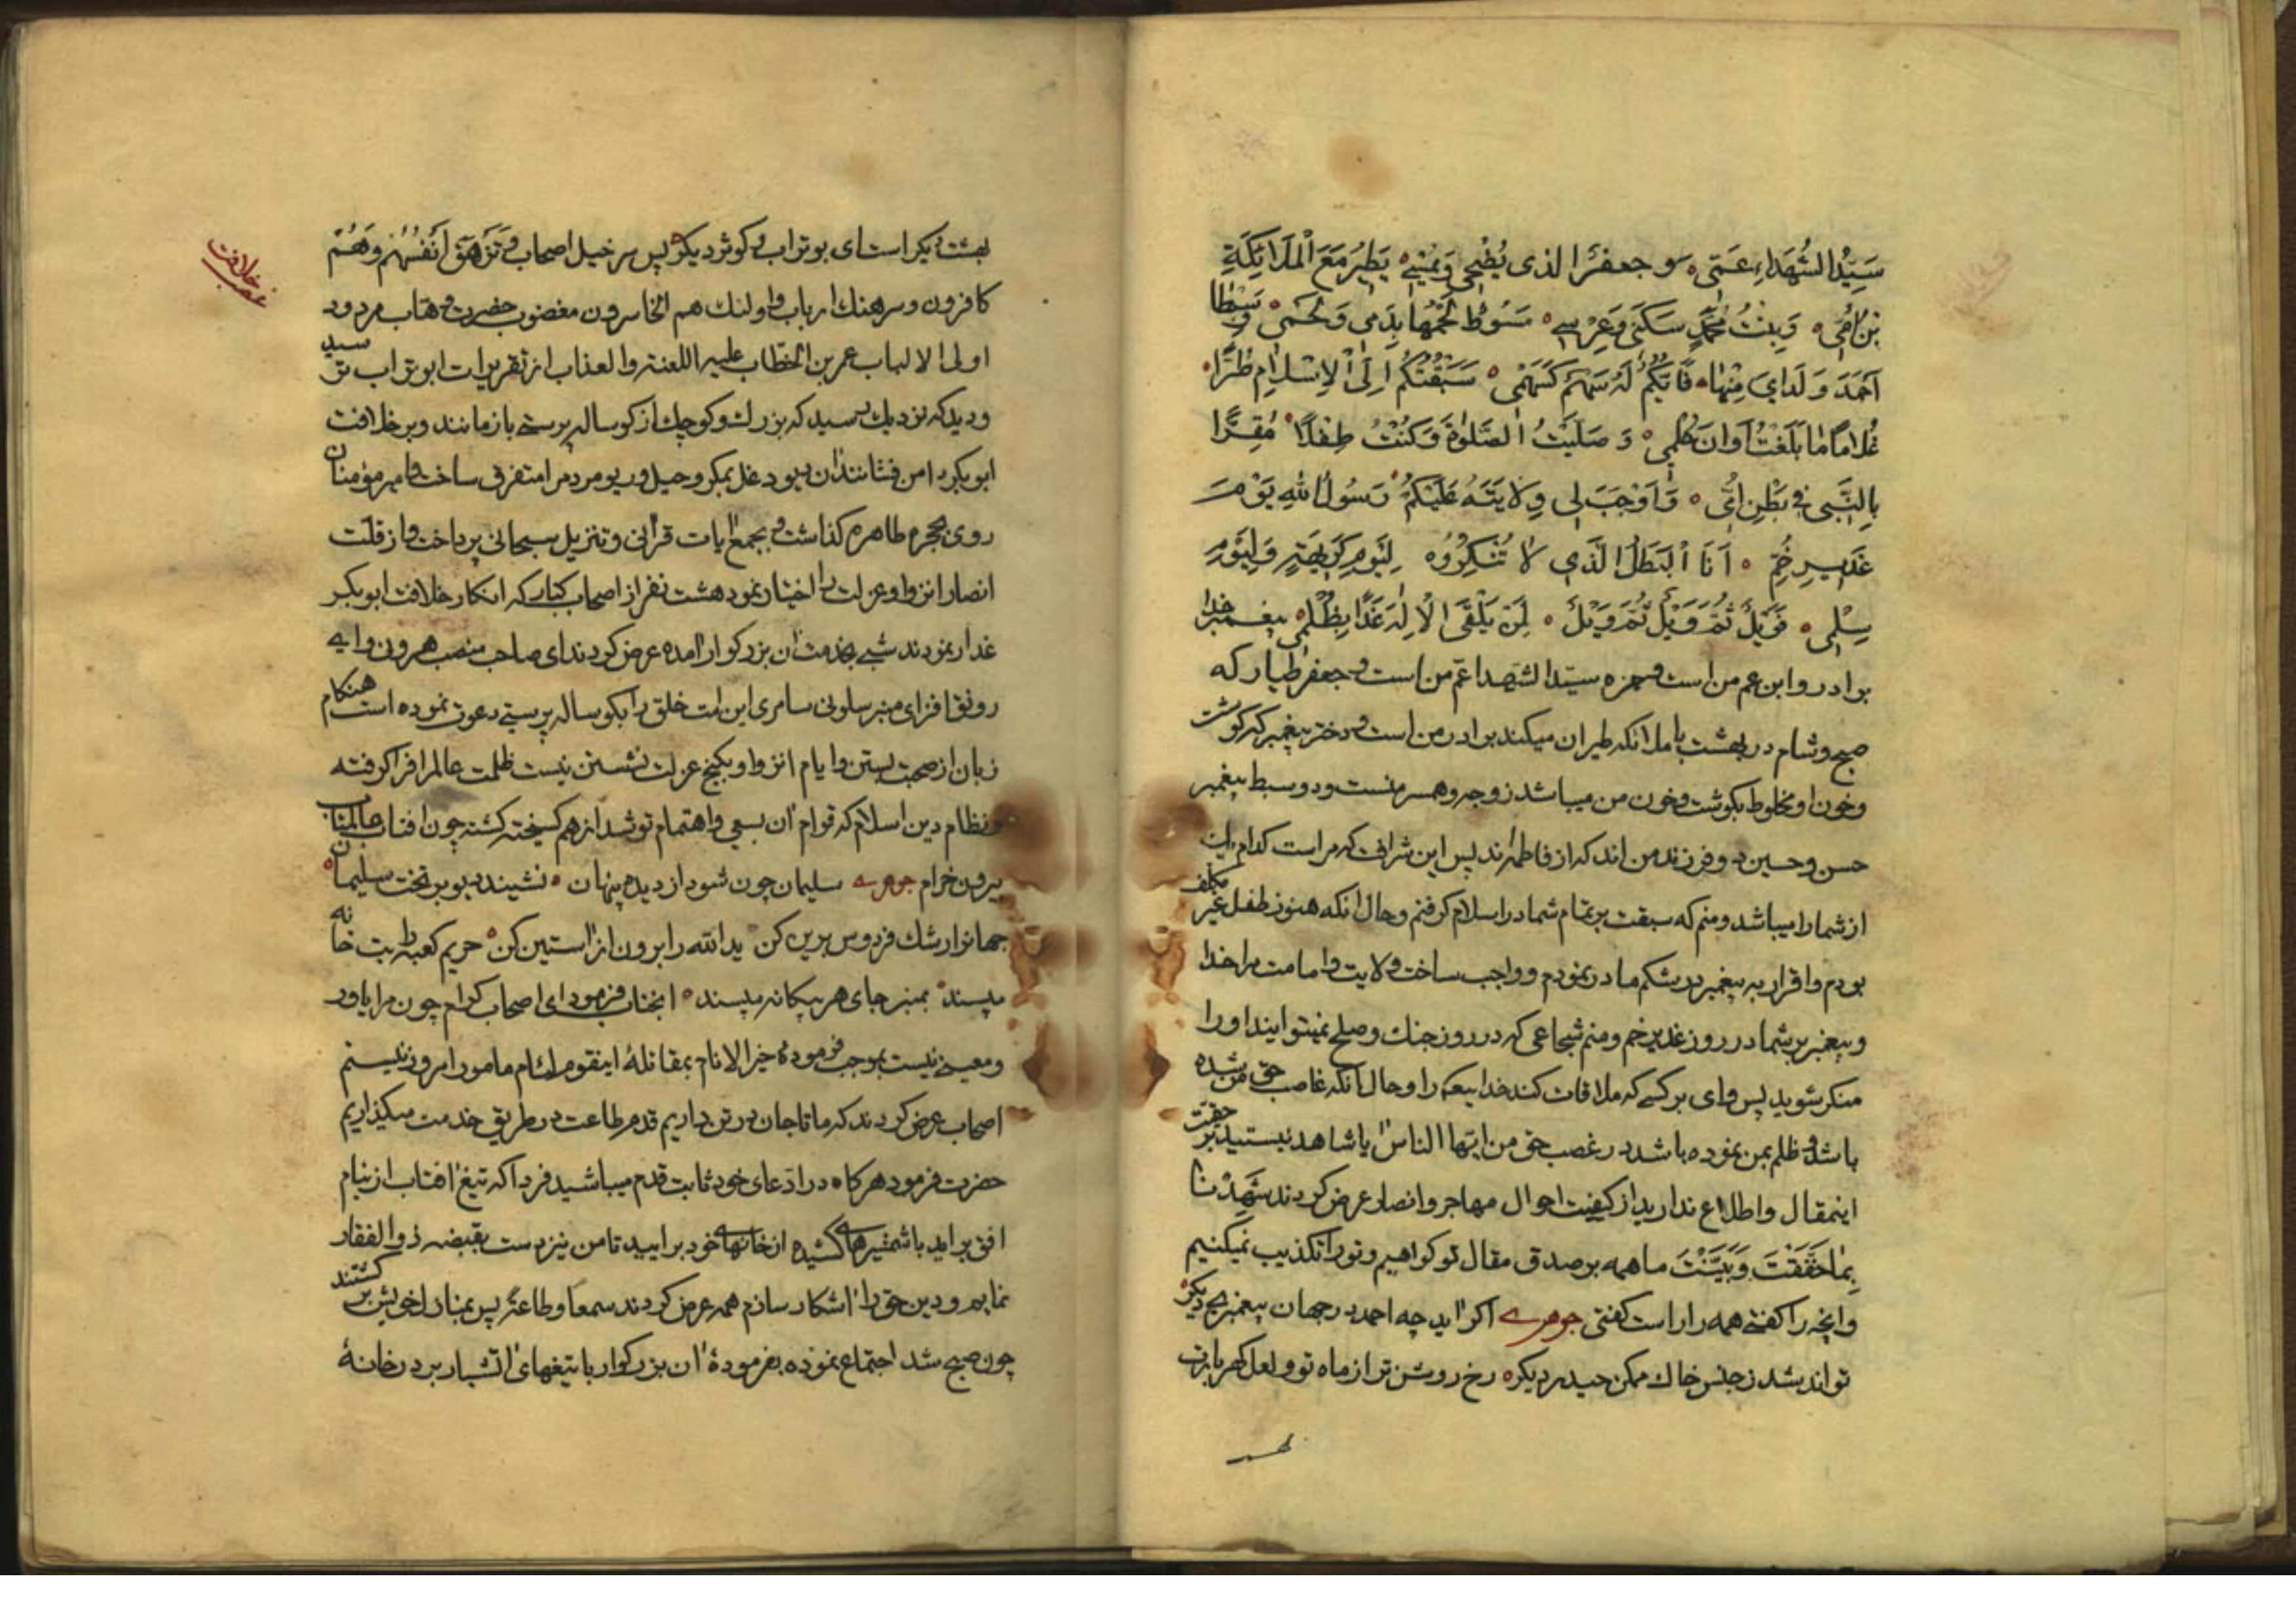 سَیِّدُ الشُّهَدَاءِ عَمّی و جعفرًا الذی یُضْحِی وَیُمْسِی یَطِیرُ مَعَ الْمَلَائِکَةِ
بْنُ اُمّی وَبِنْتُ مُحَمَّدٍ سَکَنی وَعِرْسی مَسُوطٌ لَحْمُهَا بِدَمی وَلَحْمی وَسِبْطَا
اَحْمَدَ وَلَدایَ مِنْهَا فَاَیُّکُمُ لَهُ سَهْمٌ کَسَهْمی سَبَقْتُکُمُ اِلَی الْاِسْلَامِ طُرًّا
غُلَامًا مَا بَلَغْتُ اَوَانَ حُلُمی وَصَلَّیْتُ الصَّلوٰةَ وَکُنْتُ طِفْلًا مُقِرًّا
بِالنَّبِی فی بَطْنِ اُمّی وَاَوْجَبَ لی وِلَایَتَهُ عَلَیْکُمُ رَسُولُ اللهِ یَوْمَ
غَدیرِ خُمٍّ اَنَا الْبَطَلُ الَّذی لَا تُنْکِرُوهُ لِیَوْمِ کَرِیهَةٍ وَلِیَوْمِ
سِلْمی فَوَیْلٌ ثُمَّ وَیْلٌ ثُمَّ وَیْلٌ لِمَنْ یَلْقَی الْاِلٰهَ غَدًا بِظُلْمی پیغمبر خدا
برادر و ابن عم من است و حمزه سیّد الشهدا عمّ من است و جعفر طیار که
صبح و شام در بهشت با ملائکه طیران میکند برادر من است و دختر پیغمبر که گوشت
و خون او مخلوط بگوشت و خون من میباشد زوجه و همسر منست و دو سبط پیغمبر
حسن و حسین دو فرزند من اند که از فاطمه‌اند پس این شرافت که مراست کدام یک
از شما را میباشد و منم که سبقت بر تمام شما در اسلام گرفتم و حال آنکه هنوز طفل غیر مکلف
بودم و اقرار به پیغمبر در شکم مادر نمودم و واجب ساخت ولایت و امامت مرا خدا
و پیغمبر بر شما در روز غدیر خم و منم شجاعی که در روز جنك و صلح نمیتوانید او را
منکر شوید پس وای بر کسی که ملاقات کند خدا را و حال آنکه غاصب حق من شده
باشد و ظلم بمن نموده باشد در غصب حق من ایّها الناس آیا شاهد نیستید بر حقیت
اینمقال و اطلاع ندارید از کیفیت احوال مهاجر و انصار عرض کردند شَهِدْنَا
بِمَا حَقَّقْتَ وَبَیَّنْتَ ما همه بر صدق مقال تو گواهیم و تو را تکذیب نمیکنیم
و آنچه را گفتی همه را راست گفتی جوهری اگر آید چه احمد در جهان پیغمبری دیگر
تواند شد ز جنس خاك ممکن حیدر دیگر رخ روشن تر از ماه تو و لعل گهربارت
بهشت دیگر است ای بوتراب و کوثر دیگر پس سر خیل اصحاب وَتَزْهَقَ اَنْفُسُهُمْ وَهُمْ
کافرون و سرهنك ارباب و اولئك هم الخاسرون مغضوب حضرت وهّاب مردود
اولی الالباب عمر بن الخطّاب علیه اللعنة والعذاب از تقریرات ابوتراب ترسید
و دید که نزدیك رسید که بزرك و کوچك از گوساله پرستی باز مانند و بر خلافت
ابوبکر دامن فشانند آن یهود دغل بمکر و حیل و ریو مردم را متفرق ساخت و امیر مؤمنان
روی بحجره طاهره گذاشت و بجمع آیات قرآنی و تنزیل سبحانی پرداخت و از قلّت
انصار انزوا و عزلت را اختیار نمود هشت نفر از اصحاب کبار که انکار خلافت ابوبکر
غدار نمودند شبی بخدمت آن بزرگوار آمده عرض کردند ای صاحب منصب هرون و ای
رونق افزای منبر سلونی سامری این امّت خلق را بگوساله پرستی دعوت نموده است هنگام
زبان از صحبت بستن و ایام انزوا و بکنج عزلت نشستن نیست ظلمت عالم را فرا گرفته
و نظام دین اسلام که قوام آن بسعی و اهتمام تو شد از هم گسیخته گشته چون آفتاب عالمتاب
بیرون خرام جوهری سلیمان چون شود از دیده پنهان نشیند دیو بر تخت سلیمان
جهانرا رشك فردوس برین کن ید الله را برون از آستین کن حریم کعبه را بتخانه
مپسند بمنبر جای هر بیگانه مپسند آنجناب فرمود ای اصحاب کرام چون مرا یاور
و معینی نیست بموجب فرموده خیر الانام بمقاتلهٔ اینقوم لئام مامور امروز نیستم
اصحاب عرض کردند که ما تا جان در تن داریم قدم طاعت در طریق خدمت میگذاریم
حضرت فرمود هرگاه در ادّعای خود ثابت قدم میباشید فردا که تیغ آفتاب از نیام
افق براید با شمشیرهای کشیده از خانهای خود برایید تا من نیز دست بقبضه ذوالفقار
نمایم و دین حق را آشکار سازم همه عرض کردند سمعا و طاعةً پس بمنازل خویش بر گشتند
چون صبح شد اجتماع نموده بفرمودهٔ آن بزرگوار با تیغهای آتشبار بر در خانهٔ
غصب خلافت